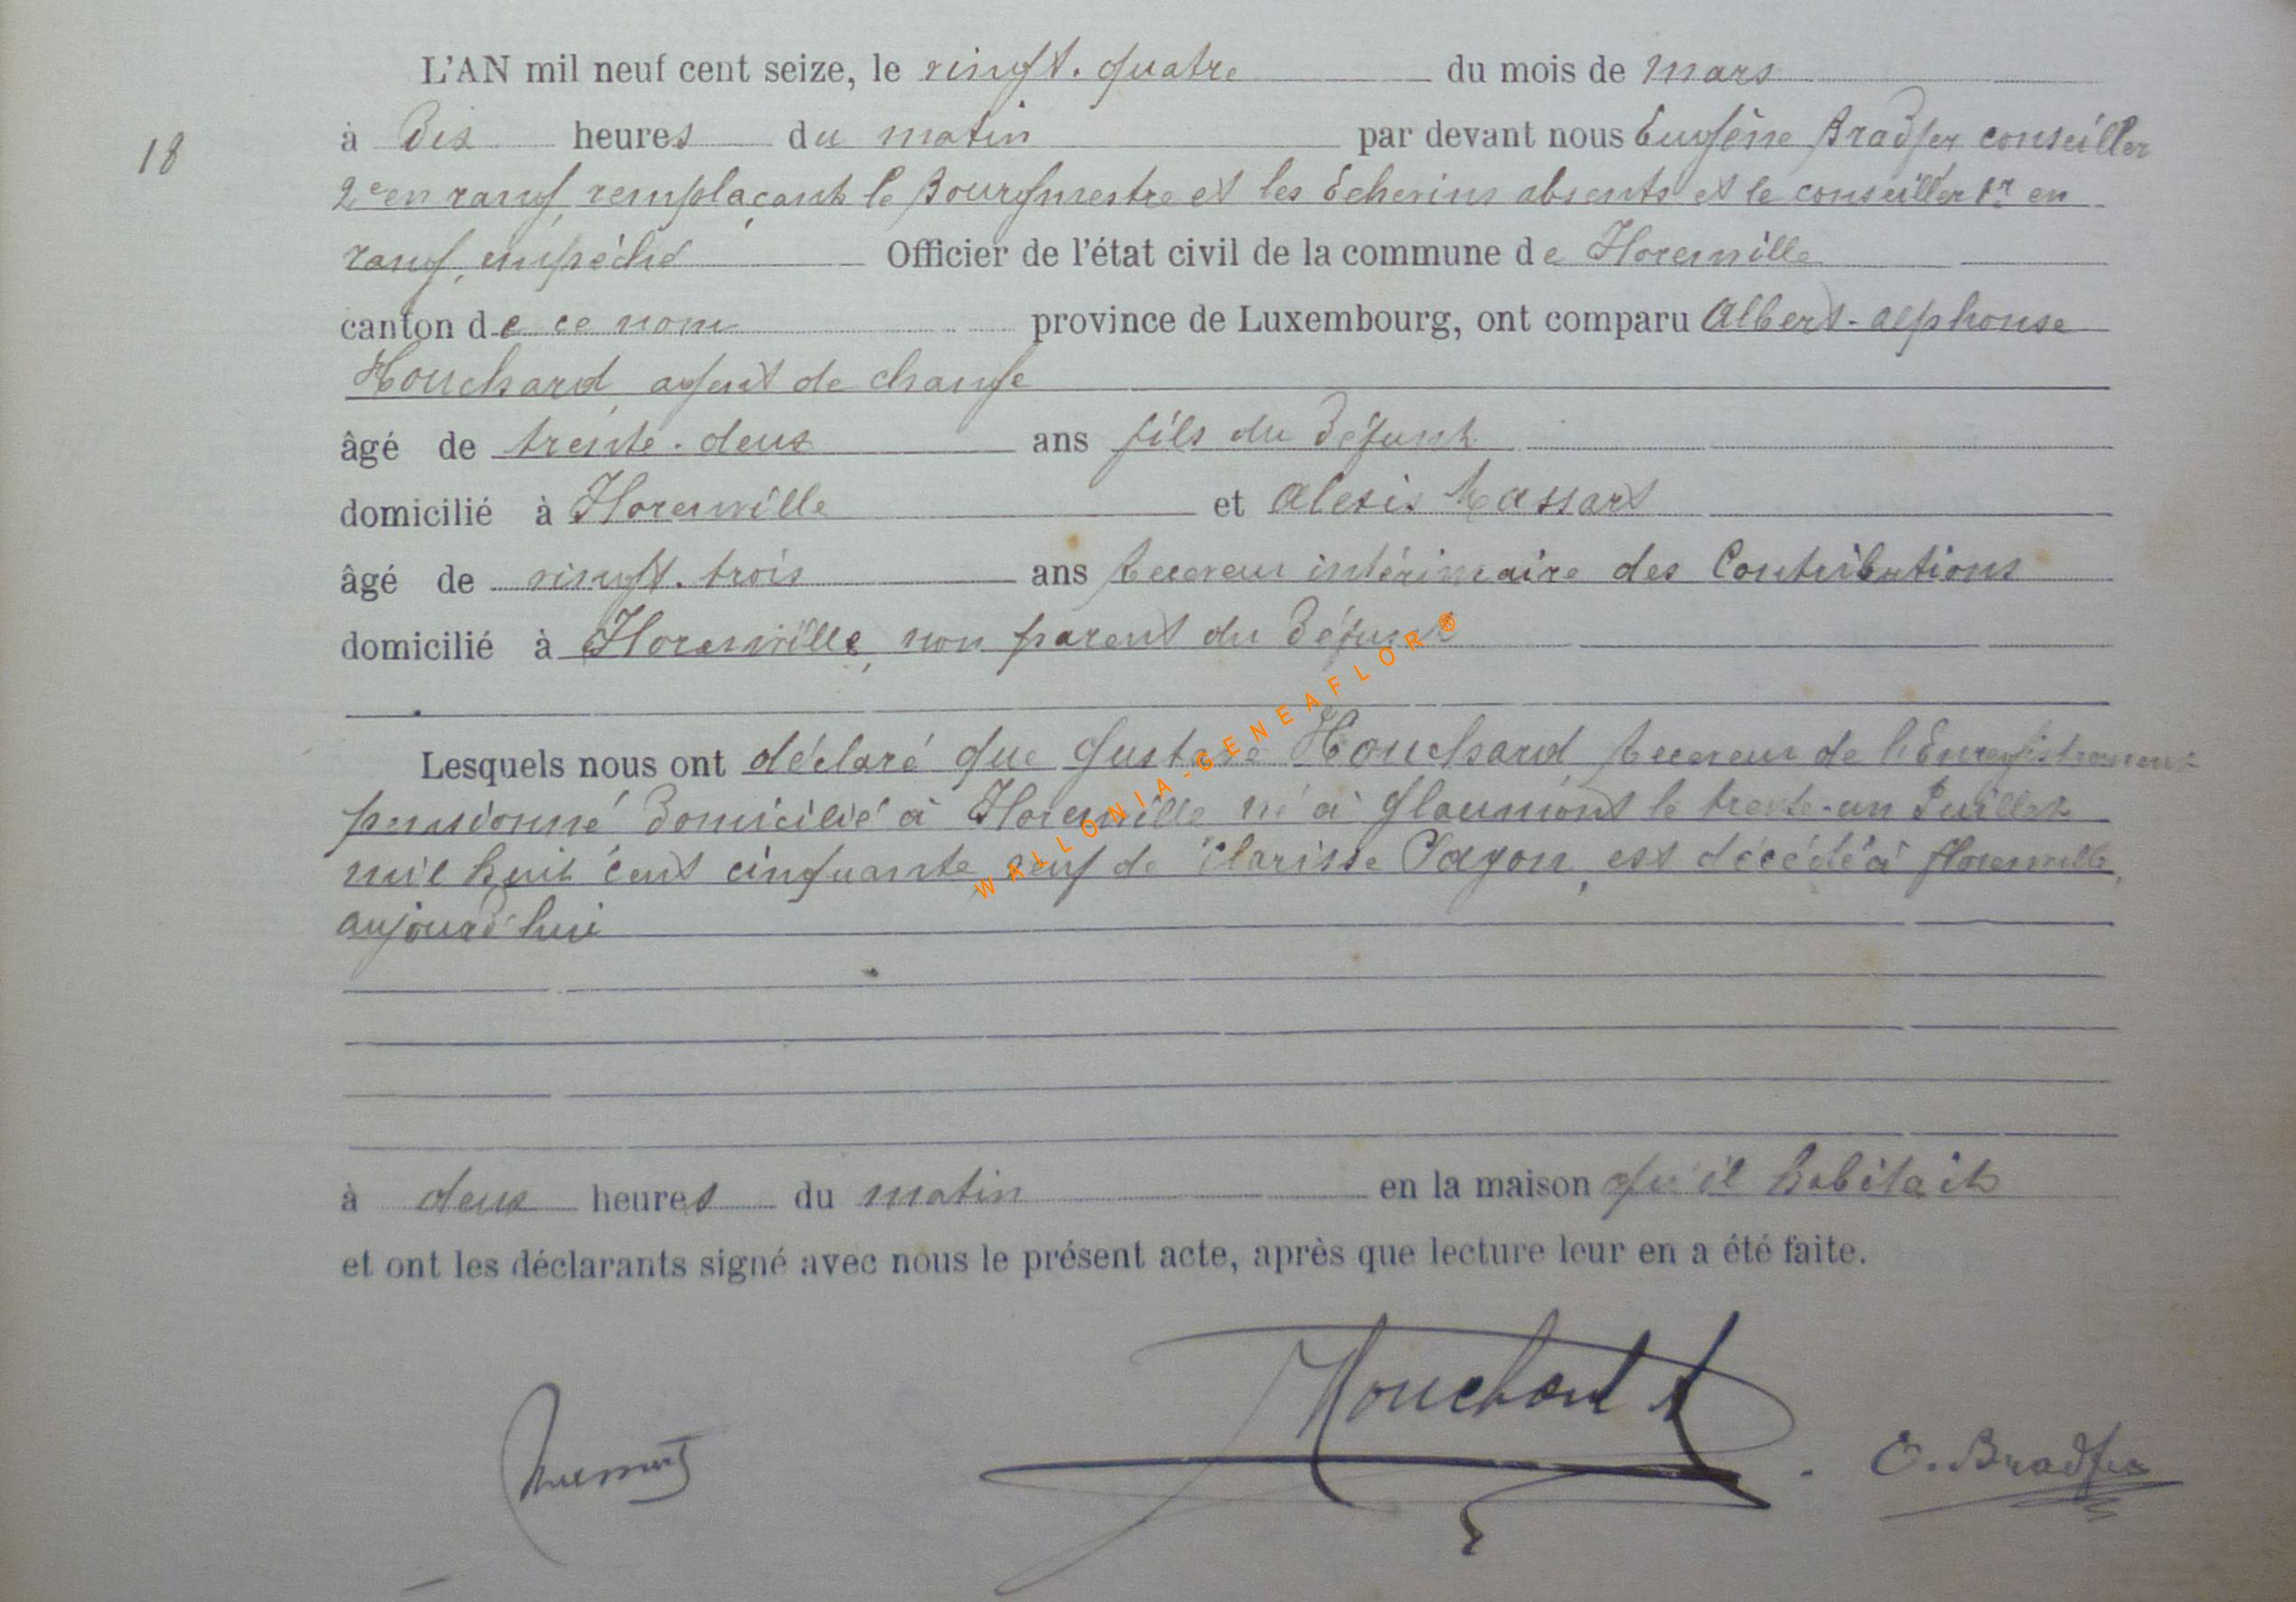 L'AN mil neuf cent seize, le vingt-quatre du mois de mars
18
à Dix heures du matin par devant nous Eugène Bradfer conseiller
2e en rang, remplaçant le Bourgmestre et les Echevins absents et le conseiller 1r en
rang, empêché Officier de l'état civil de la commune de Florenville
canton de ce nom province de Luxembourg, ont comparu Albert-alphonse
Houchard, agent de change
âgé de trente-deux ans fils du Défunt
domicilié à Florenville et Alexis Massart
âgé de vingt-trois ans Receveur intérimaire des Contributions
domicilié à Florenville, non parent du Défunt
WALLONIA-GENEAFLOR®
Lesquels nous ont déclaré que Gustave Houchard Receveur de l'Enregistrement
pensionné Domicilié à Florenville né à Glaumont le trente-un Juillet
mil huit cent cinquante, veuf de Clarisse Payon, est décédé à florenville,
aujourd'hui
à deux heures du matin en la maison qu'il habitait
et ont les déclarants signé avec nous le présent acte, après que lecture leur en a été faite.
Houchard
E. Bradfer